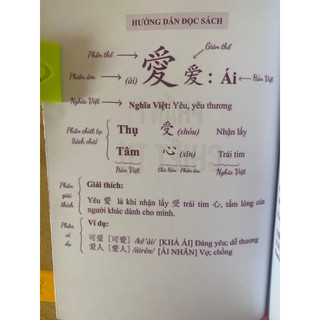 HƯỚNG DẪN ĐỌC SÁCH
Phồn thể
Giản thể
Phiên âm
(ài)
愛 爱: Ái
Hán Việt
Nghĩa Việt
Nghĩa Việt: Yêu, yêu thương
Phần chiết tự
(tách chữ)
Thụ 受 (shòu) Nhận lấy
Tâm 心 (xīn) Trái tim
Hán Việt Chữ Hán Phiên âm Nghĩa Việt
Phần
giải
thích
Giải thích:
Yêu 愛 là khi nhận lấy 受 trái tim 心, tấm lòng của
người khác dành cho mình.
Phần
ví dụ
Ví dụ:
可爱 [可愛] /kě'ài/ [KHẢ ÁI] Đáng yêu; dễ thương
爱人 [愛人] /àirén/ [ÁI NHÂN] Vợ; chồng